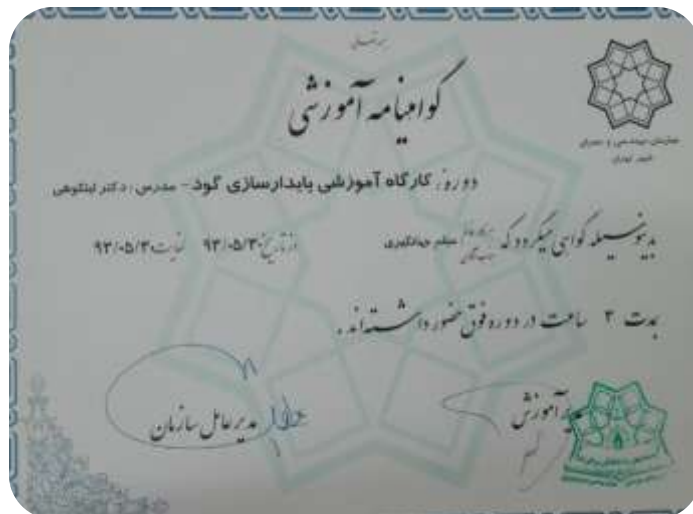 گواهینامه آموزشی
سازمان مهندسی و عمران
شهر تهران
دوره: کارگاه آموزشی پایدارسازی گود - مدرس: دکتر لیتکوهی
بدینوسیله گواهی میگردد که میثم جهانگیری از تاریخ ۹۳/۰۵/۳۰ لغایت ۹۳/۰۵/۳۰
بمدت ۳ ساعت در دوره فوق حضور داشته‌اند.
مدیر آموزش
مدیرعامل سازمان